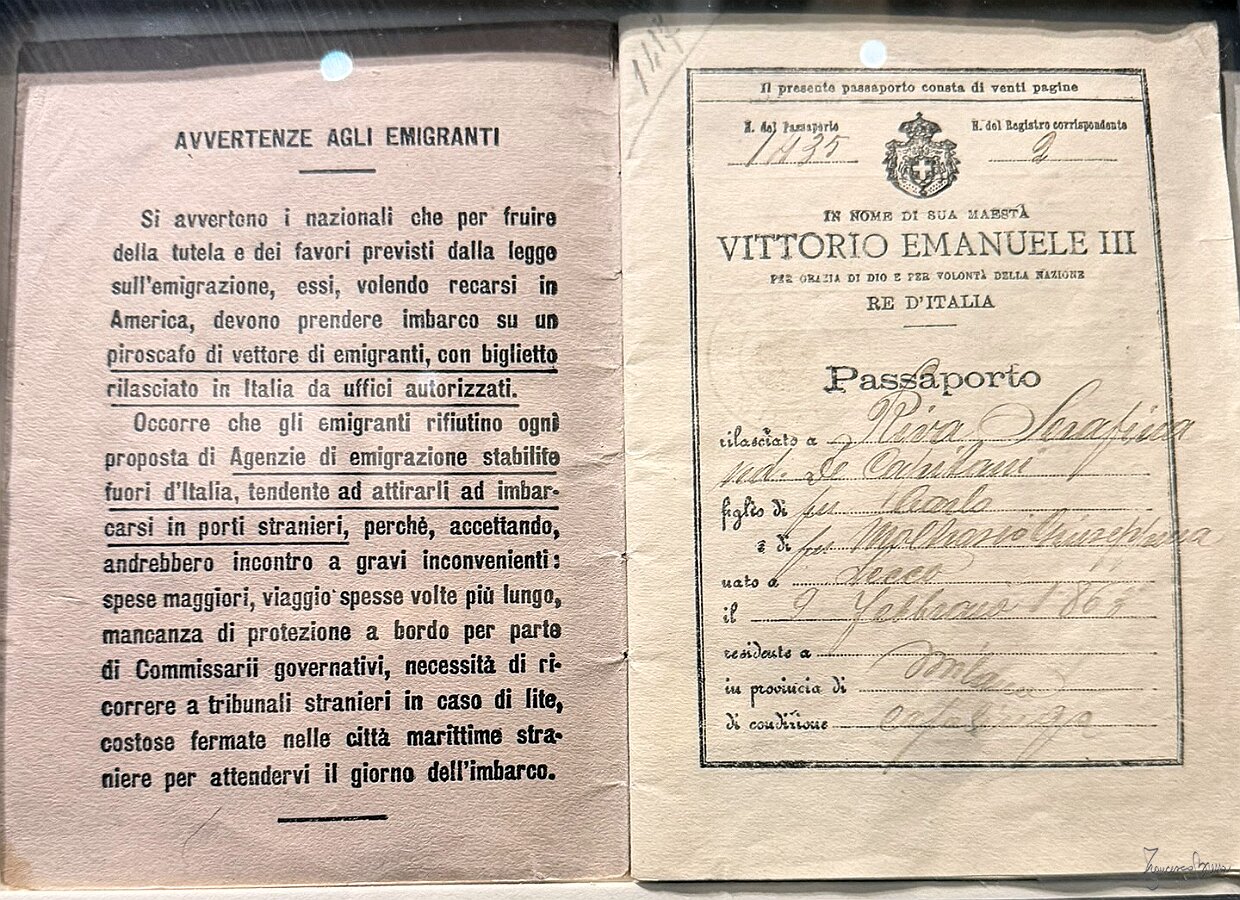 AVVERTENZE AGLI EMIGRANTI
Si avvertono i nazionali che per fruire
della tutela e dei favori previsti dalla legge
sull'emigrazione, essi, volendo recarsi in
America, devono prendere imbarco su un
piroscafo di vettore di emigranti, con biglietto
rilasciato in Italia da uffici autorizzati.
Occorre che gli emigranti rifiutino ogni
proposta di Agenzie di emigrazione stabilite
fuori d'Italia, tendente ad attirarli ad imbar-
carsi in porti stranieri, perchè, accettando,
andrebbero incontro a gravi inconvenienti:
spese maggiori, viaggio spesse volte più lungo,
mancanza di protezione a bordo per parte
di Commissarii governativi, necessità di ri-
correre a tribunali stranieri in caso di lite,
costose fermate nelle città marittime stra-
niere per attendervi il giorno dell'imbarco.
Il presente passaporto consta di venti pagine
N. del Passaporto
N. del Registro corrispondente
2
IN NOME DI SUA MAESTÀ
VITTORIO EMANUELE III
PER GRAZIA DI DIO E PER VOLONTÀ DELLA NAZIONE
RE D'ITALIA
Passaporto
rilasciato a Riva Serafina
ved. De Capitani
figlio di fu Carlo
e di fu Giuseppina
nato a Lecco
il 9 Febbraio
residente a
in provincia di Milano
di condizione casalinga